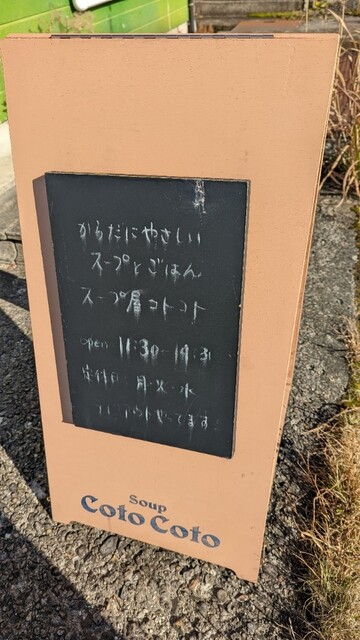 からだにやさしい
スープとごはん
スープ屋コトコト
open 11:30-14:31
定休日 月・火・水
テイクアウトやってます
Soup
Coto Coto